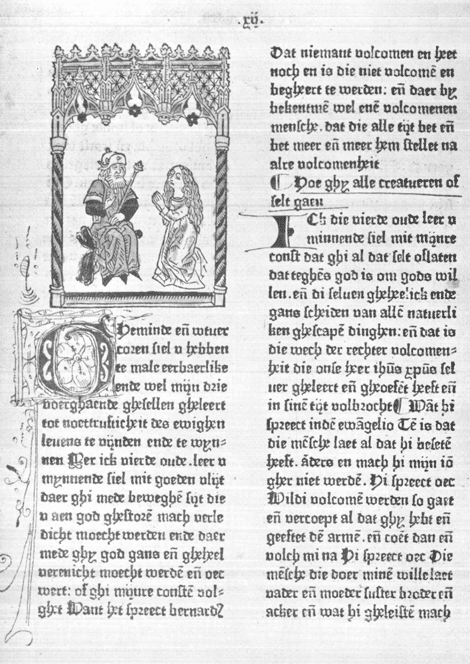 .xij.
GHeminde en̄ wtuer
coren siel v hebben
te male eerbaerlike
ende wel mijn drie
voerghaende ghesellen gheleert
tot noettrufticheit des ewighen
levens te vijnden ende te wyn=
nen Mer ick vierde oude. leer v
mynnende siel mit goeden vlijt
daer ghi mede beweghē sijt die
v aen god ghestorē mach verle
dicht moecht werden ende daer
mede ghy god gans en̄ gheheel
verenicht moecht werdē en̄ oec
wert: of ghi mijnre constē vol=
ghet Want het spreect bernardꝰ
Dat niemant volcomen en heet
noch en is die niet volcomē en
begheert te werden: en̄ daer by
bekentmē wel enē volcomenen
mensche. dat die alle tijt bet en̄
bet meer en̄ meer hem stellet na
alre volcomenheit
¶ Hoe ghy alle creatueren of
selt gaen
ICk die vierde oude leer v
minnende siel mit mijnre
const dat ghi al dat selt oflaten
dat teghēs god is om gods wil
len. en̄ di selven gheheelick ende
gans scheiden van allē natuerli
ken ghescapē dinghen: en̄ dat is
die wech der rechter volcomen=
heit die onse heer ihūs xp̄us sel
ver gheleert en̄ ghoefet heeft en̄
in sinē tijt volbrocht ¶ Wāt hi
spreect indē ewāgelio Tē is dat
die mēsche laet al dat hi besetē
heeft. āders en mach hi mijn iō
gher niet werdē. Hi spreect oec
Wildi volcomē werden so gaet
en̄ vercoept al dat ghy hebt en̄
geeftet dē armē. en̄ coēt dan en̄
volch mi na Hi spreect oec Die
mēsche die doer minē wille laet
vader en̄ moeder suster broder en̄
acker en̄ wat hi gheleistē mach